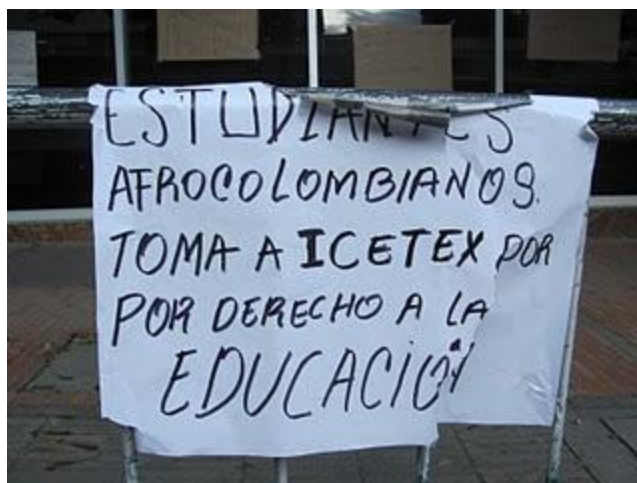 ESTUDIANTES
AFROCOLOMBIANOS.
TOMA A ICETEX POR
POR DERECHO A LA
EDUCACIÓN